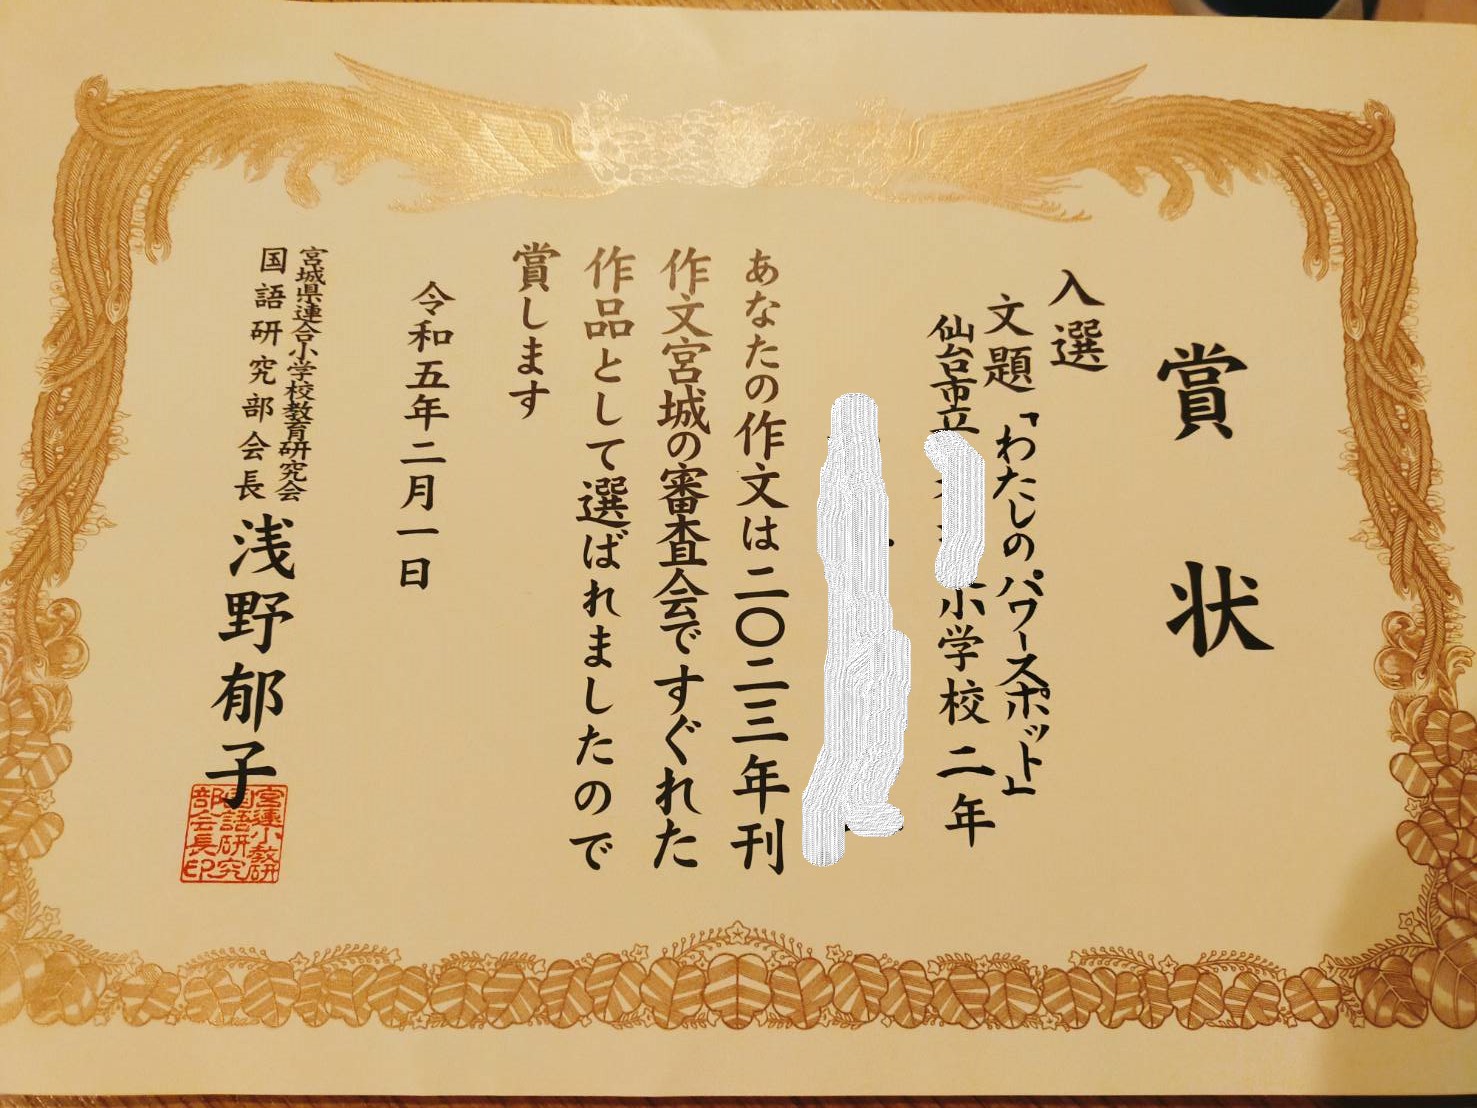 賞状
入選
文題「わたしのパワースポット」
仙台市立
小学校 二年
あなたの作文は二〇二三年刊
作文宮城の審査会ですぐれた
作品として選ばれましたので
賞します
令和五年二月一日
宮城県連合小学校教育研究会
国語研究部会長 浅野郁子
宮連小教研
国語研究
部会長印